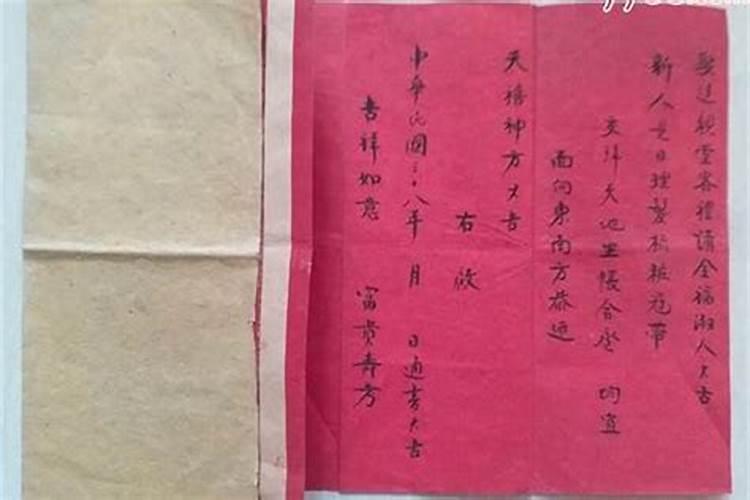 娶送親堂客礼請全福淑人大吉
新人是日理髮梳粧冠帶
交拜天地坐帳合卺 均宜
面向東南方恭迎
天禧神方大吉
右啟
中華民國三十八年 月 日通書大吉
吉祥如意 富貴壽方